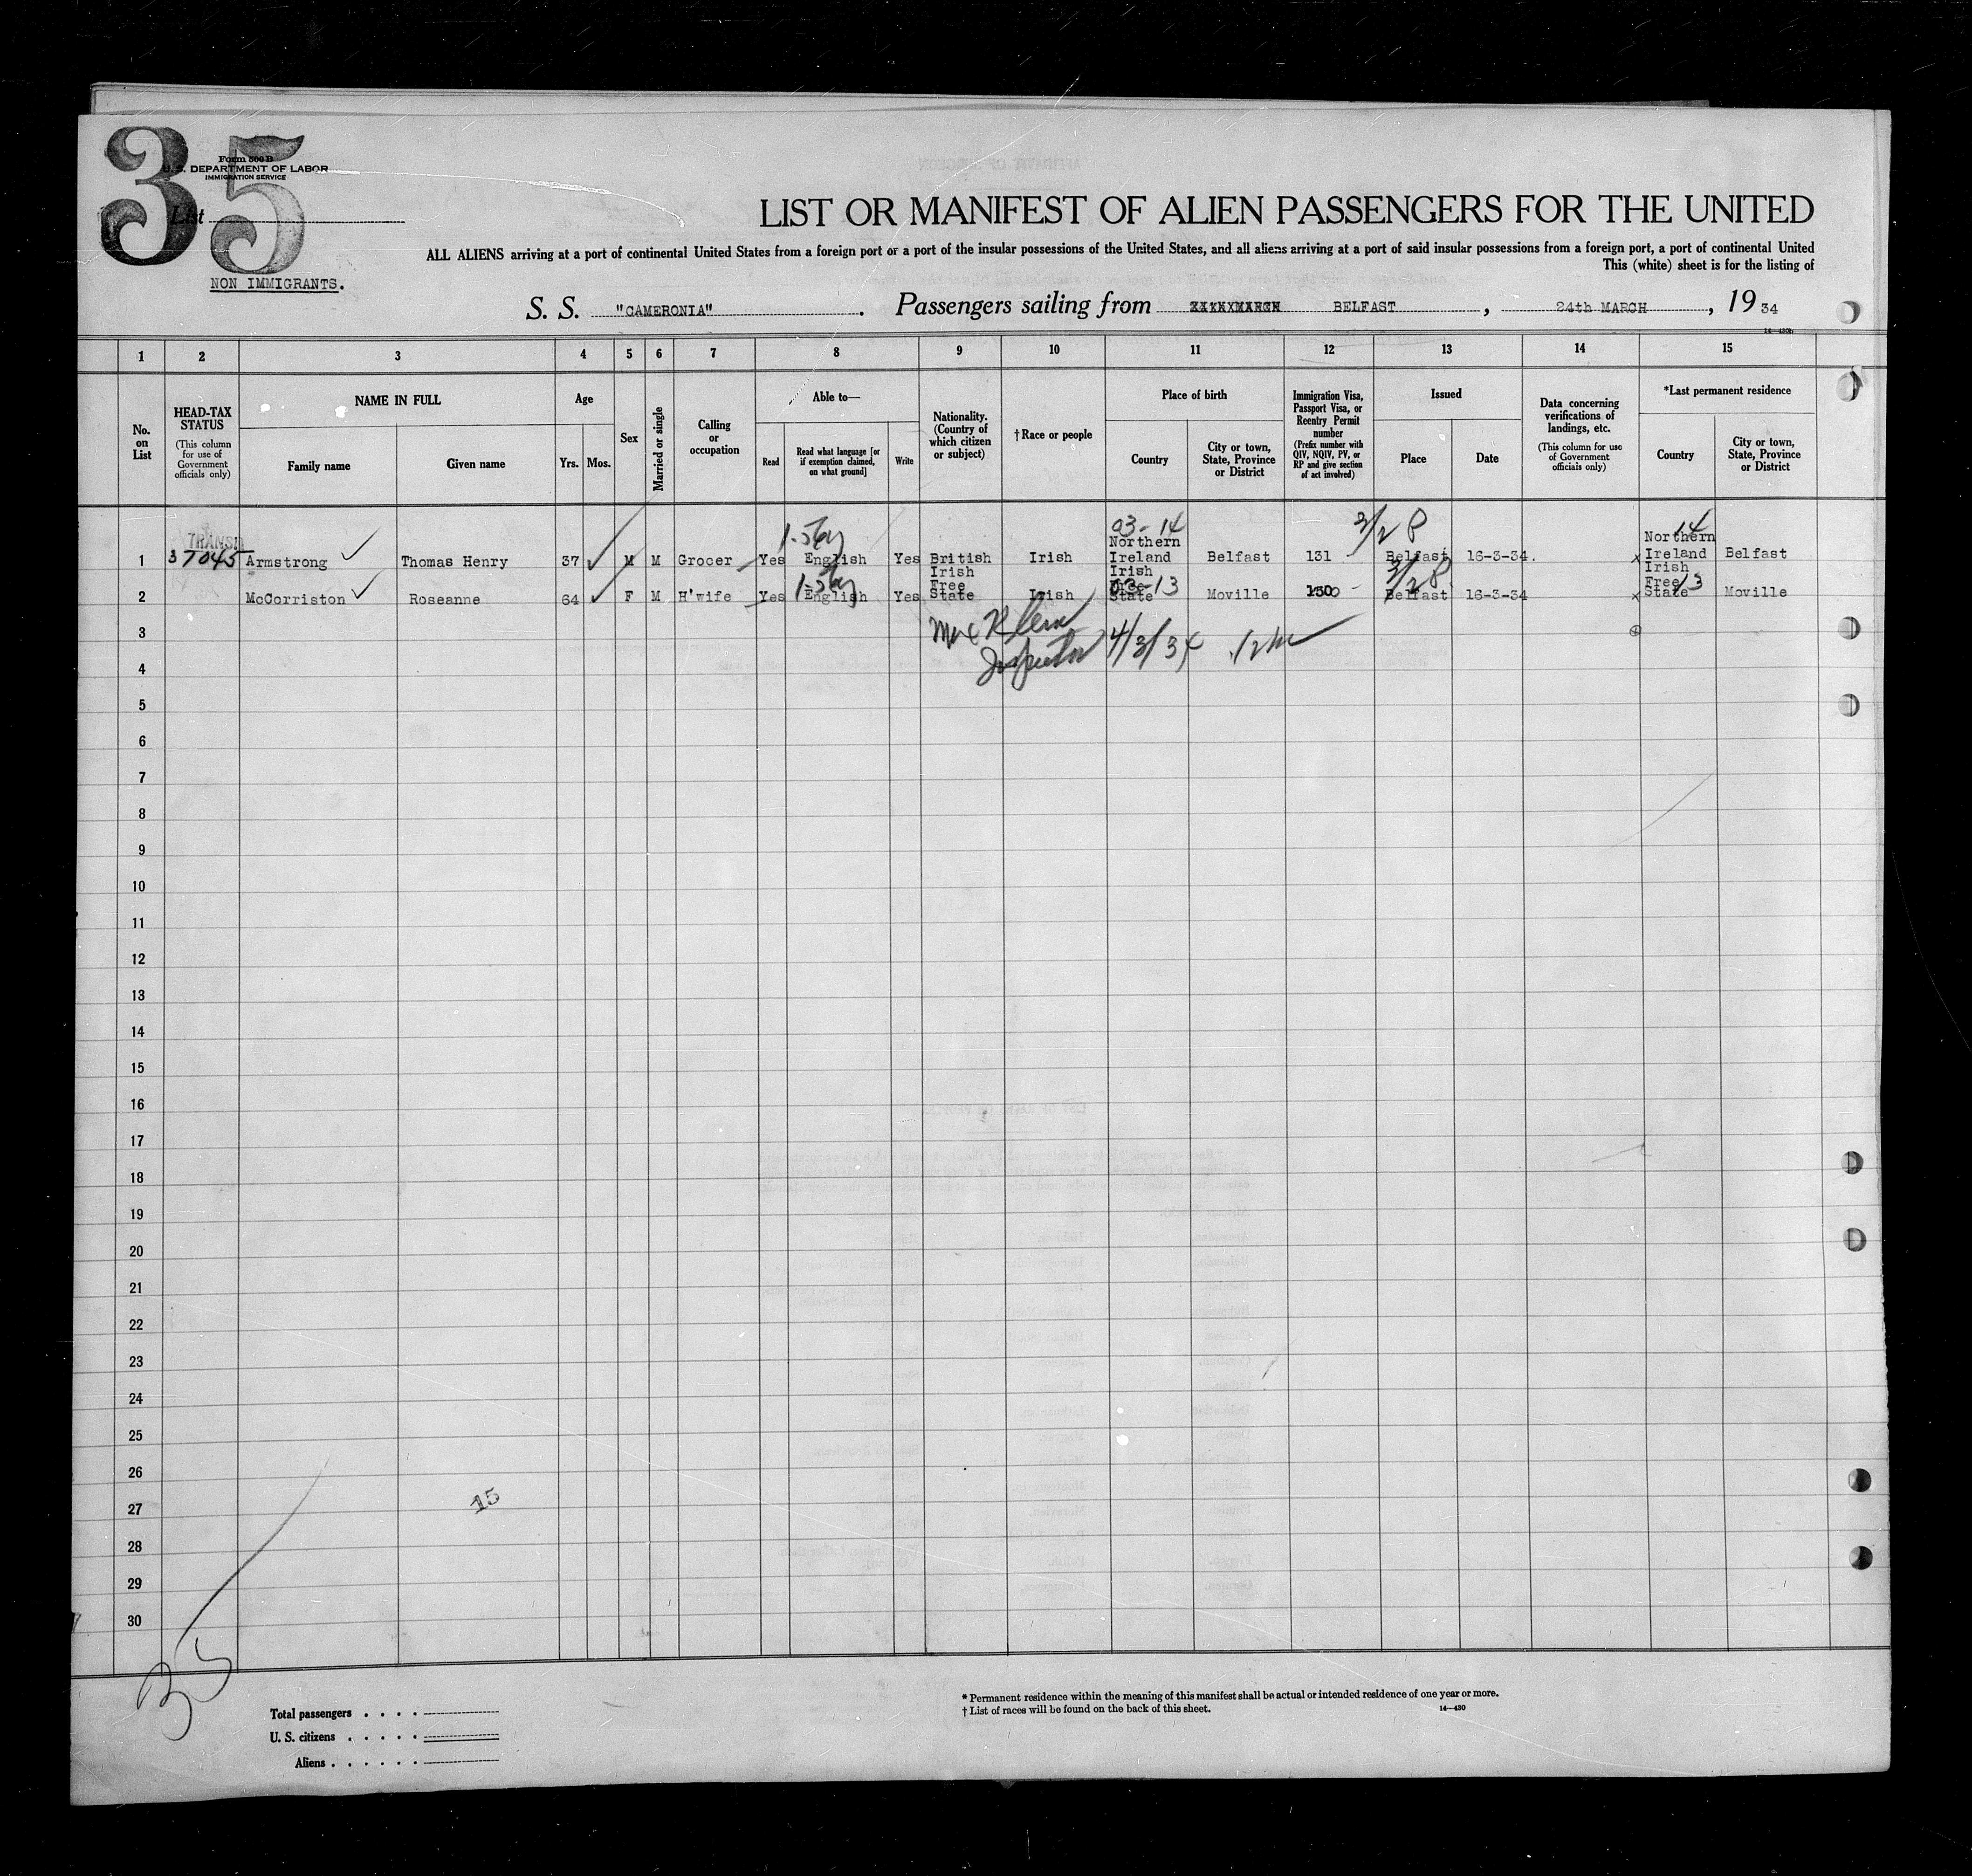 35
Form 500 B
U. S. DEPARTMENT OF LABOR
IMMIGRATION SERVICE
List
NON IMMIGRANTS.
LIST OR MANIFEST OF ALIEN PASSENGERS FOR THE UNITED
ALL ALIENS arriving at a port of continental United States from a foreign port or a port of the insular possessions of the United States, and all aliens arriving at a port of said insular possessions from a foreign port, a port of continental United
This (white) sheet is for the listing of
S. S. "CAMERONIA". Passengers sailing from BELFAST, 24th MARCH, 1934
1 2 3 4 5 6 7 8 9 10 11 12 13 14 15
No. on List
HEAD-TAX STATUS
(This column for use of Government officials only)
NAME IN FULL
Family name
Given name
Age
Yrs. Mos.
Sex
Married or single
Calling or occupation
Able to—
Read
Read what language [or if exemption claimed, on what ground]
Write
Nationality. (Country of which citizen or subject)
†Race or people
Place of birth
Country
City or town, State, Province or District
Immigration Visa, Passport Visa, or Reentry Permit number
(Prefix number with QIV, NQIV, PV, or RP and give section of act involved)
Issued
Place
Date
Data concerning verifications of landings, etc.
(This column for use of Government officials only)
*Last permanent residence
Country
City or town, State, Province or District
03-14 14
1 37045 Armstrong Thomas Henry 37 M M Grocer Yes English Yes British Irish Northern Ireland Belfast 131 Belfast 16-3-34. x Northern Ireland Belfast
03-13 13
2 McCorriston Roseanne 64 F M H'wife Yes English Yes Irish Free State Irish Irish Free State Moville Belfast 16-3-34 x Irish Free State Moville
3 Inspector 4/3/34
4
5
6
7
8
9
10
11
12
13
14
15
16
17
18
19
20
21
22
23
24
25
26
27 15
28
29
30
35
Total passengers . . . .
U. S. citizens . . . . .
Aliens . . . . . .
* Permanent residence within the meaning of this manifest shall be actual or intended residence of one year or more.
† List of races will be found on the back of this sheet.
14—430